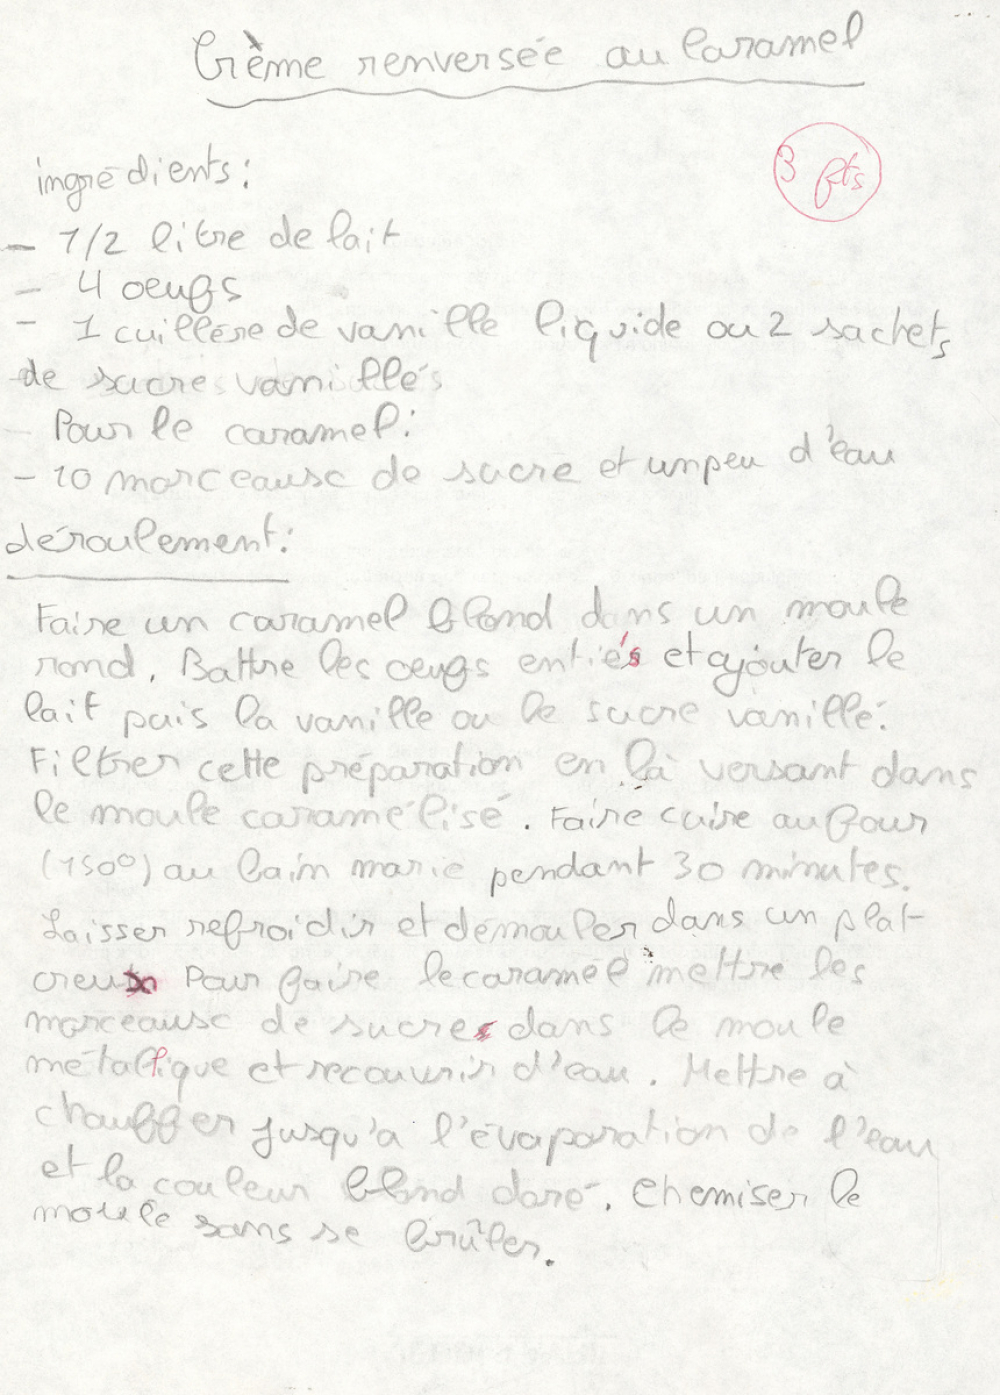 Crème renversée au Caramel
3 pts
ingrédients:
- 1/2 litre de lait
- 4 oeufs
- 1 cuillère de vanille liquide ou 2 sachets
de sucres vanillés
- Pour le caramel:
- 10 morceaux de sucre et un peu d'eau
déroulement:
Faire un caramel blond dans un moule
rond. Battre les oeufs entiés et ajouter le
lait puis la vanille ou le sucre vanillé.
Filtrer cette préparation en la versant dans
le moule caramélisé. Faire cuire au four
(150°) au bain marie pendant 30 minutes.
Laisser refroidir et démouler dans un plat
creux Pour faire le caramel mettre les
morceaux de sucre dans le moule
métallique et recouvrir d'eau. Mettre à
chauffer jusqu'a l'évaporation de l'eau
et la couleur blond doré. Chemiser le
moule sans se brûler.